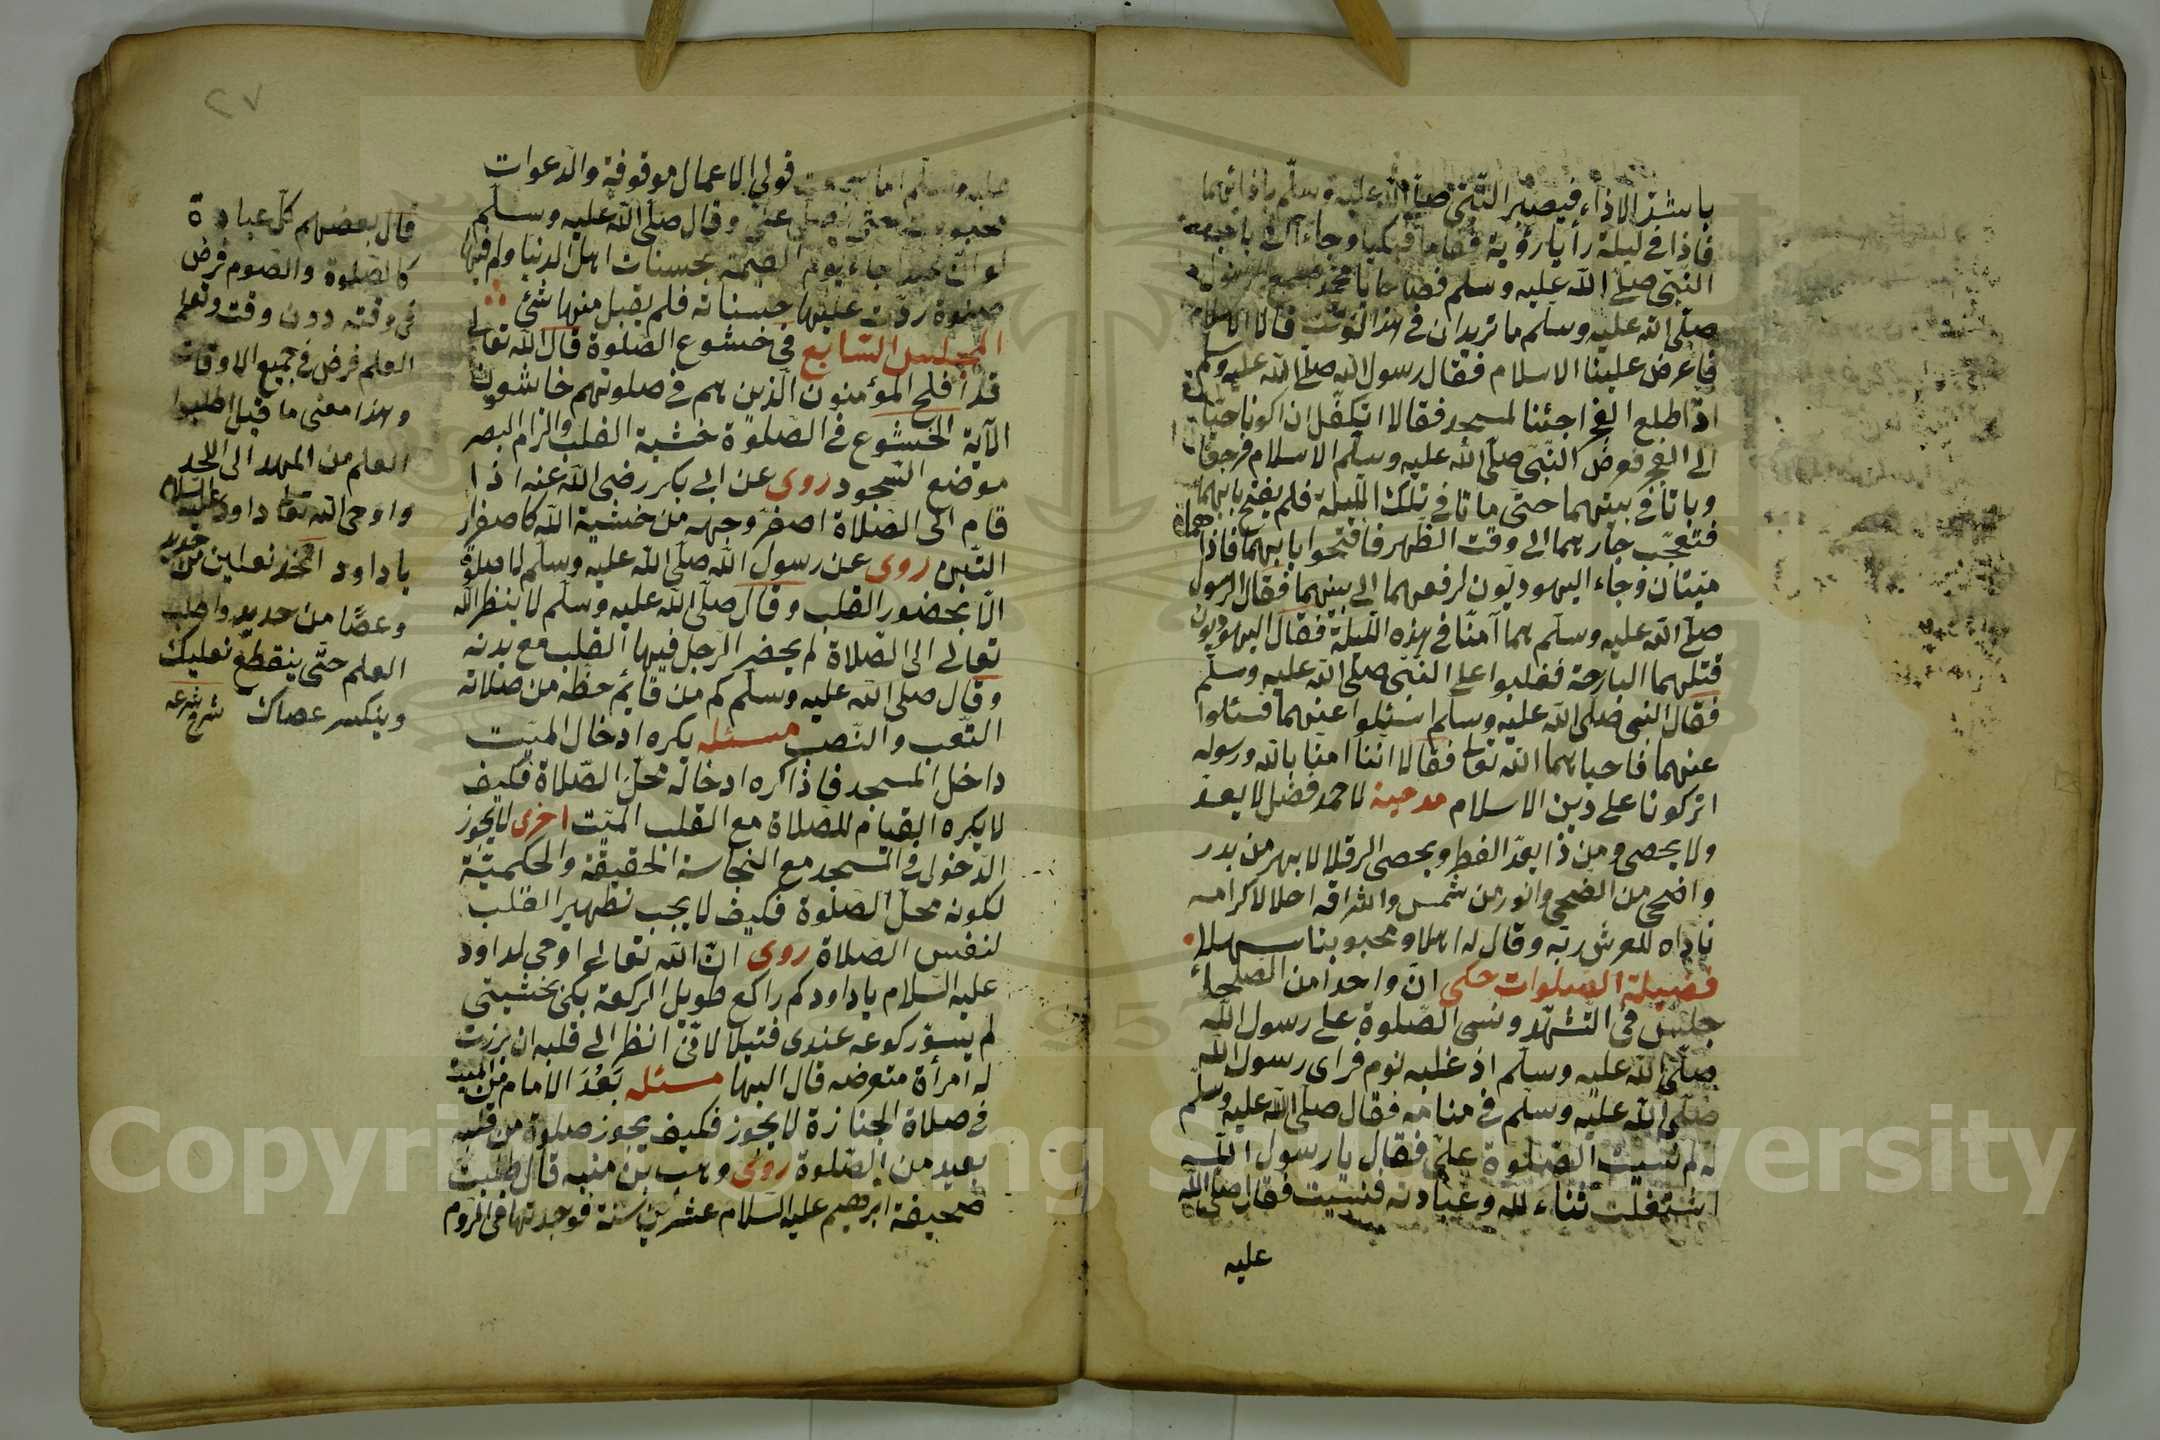 باشدّ الاذاء فيصبر النّبيّ صلّى الله عليه وسلّم باذائهما
فاذا في ليلة رأيا رؤية فقاما فبكيا وجاءآ الى باب
النبّي صلّى الله عليه وسلم فصاحا يا محمد الرسول
صلّى الله عليه وسلّم ما تريدان في هذا الوقت قالا الاسلام
فاعرض علينا الاسلام فقال رسول الله صلّى الله عليه وسلم
اذا طلع الفجر اجئنا لمسجد فقالا اتكفّل ان اكونا حيّا
الى الفجر فعرض النّبيّ صلّى الله عليه وسلّم الاسلام فرجعا
وباتا في بيتهما حتّى ماتا في تلك الليلة فلم يفتح بابهما
فتعجّب جارهما الى وقت الظهر فافتحوا بابهما فاذا هما
ميتان وجاء اليهوديّون لرفعهما الى بيتهما فقال الرسول
صلّى الله عليه وسلّم هما آمنّا في هذه اللّيلة فقال اليهوديون
قتلهما البارحة فغلبوا على النّبيّ صلّى الله عليه وسلّم
فقال النبي صلّى الله عليه وسلم اسئلوا عنهما فسئلوا
عنهما فاحياهما الله تعالى فقالا اننا امنا بالله ورسوله
اتركونا على دين الاسلام مدحية لاحمد فضل لا يعدّ
ولا يحصى ومن ذا يعدّ القطر ويحصى الرملا لابهر من بدر
واضحى من الضحى وانور من شمس واشراقه احلا لاكرامه
ناداه للعرش ربّه وقال له اهلا ومحبوبنا سهلا
فضيلة الصلوات حكى انّ واحدا من الصلحاء
جلس في التّشهّد ونسى الصّلوة على رسول الله
صلّى الله عليه وسلّم اذ غلبه نوم فراى رسول الله
صلّى الله عليه وسلّم في منامه فقال صلّى الله عليه وسلّم
له لم نسيت الصّلوة علىّ فقال يا رسول الله
اشتغلت ثناء لله وعبادته فنسيت فقال صلى الله
عليه
٢٧
عليه وسلّم اما سمعت قولي الاعمال موقوفة والدعوات
محبوسة حتى يصلّى علىّ وقال صلّى الله عليه وسلّم
لو انّ عبد جاء يوم القيمة بحسنات اهل الدنيا ولم فيها
صلوة ردّت عليها حسناته فلم يقبل منها شئ
المجلس السّابع في خشوع الصّلوة قال الله تعالى
قد افلح المؤمنون الّذين هم في صلوتهم خاشعون
الآية الخشوع في الصّلوة خشية القلب والزام البصر
موضع السّجود روى عن ابي بكر رضي الله عنه اذا
قام الى الصّلاة اصفرّ وجهه من خشية الله كاصفرار
التّبن روى عن رسول الله صلّى الله عليه وسلّم لا صلوة
الّا بحضور القلب وقال صلّى الله عليه وسلّم لا ينظر الله
تعالى الى الصّلاة لم يحضر الرّجل فيها القلب مع بدنه
وقال صلى الله عليه وسلّم كم من قائم حظه من صلاته
التّعب والنّصب مسئله يكره ادخال الميّت
داخل المسجد فاذا كره ادخاله محلّ الصّلاة فكيف
لا يكره القيام للصّلاة مع القلب الميّت اخرى لا يجوز
الدّخول في المسجد مع النجاسة الحقيقة والحكميّة
لكونه محلّ الصّلوة فكيف لا يجب تطهير القلب
لنفس الصلاة روى انّ الله تعالى اوحى لداود
عليه السّلام يا داود كم راكع طويل الركعة بكى بخشيتي
لم يسوّ ركوعه عندى فتيلا لانّى انظر الى قلبه ان برزت
له امرأة متعرضه قال اليها مسئله بَعُدَ الامام من الميت
في صلاة الجنازة لا يجوز فكيف يجوز صلوة من قلبه
بعيد من الصّلوة روى وهب بن منبه قال طلبت
صحيفة ابرهيم عليه السّلام عشرين سنة فوجدتها في الروم
قال بعضهم كلّ عبادة
كالصّلوة والصّوم فرض
في وقته دون وقت وتعلم
العلم فرض في جميع الاوقات
وهذا معنى ما قيل اطلبوا
العلم من المهد الى اللحد
واوحى الله تعا داود عليه السلام
يا داود اتخذ نعلين من حديد
وعصًا من حديد واطلب
العلم حتّى ينقطع نعليك
وينكسر عصاك شرح شرعه